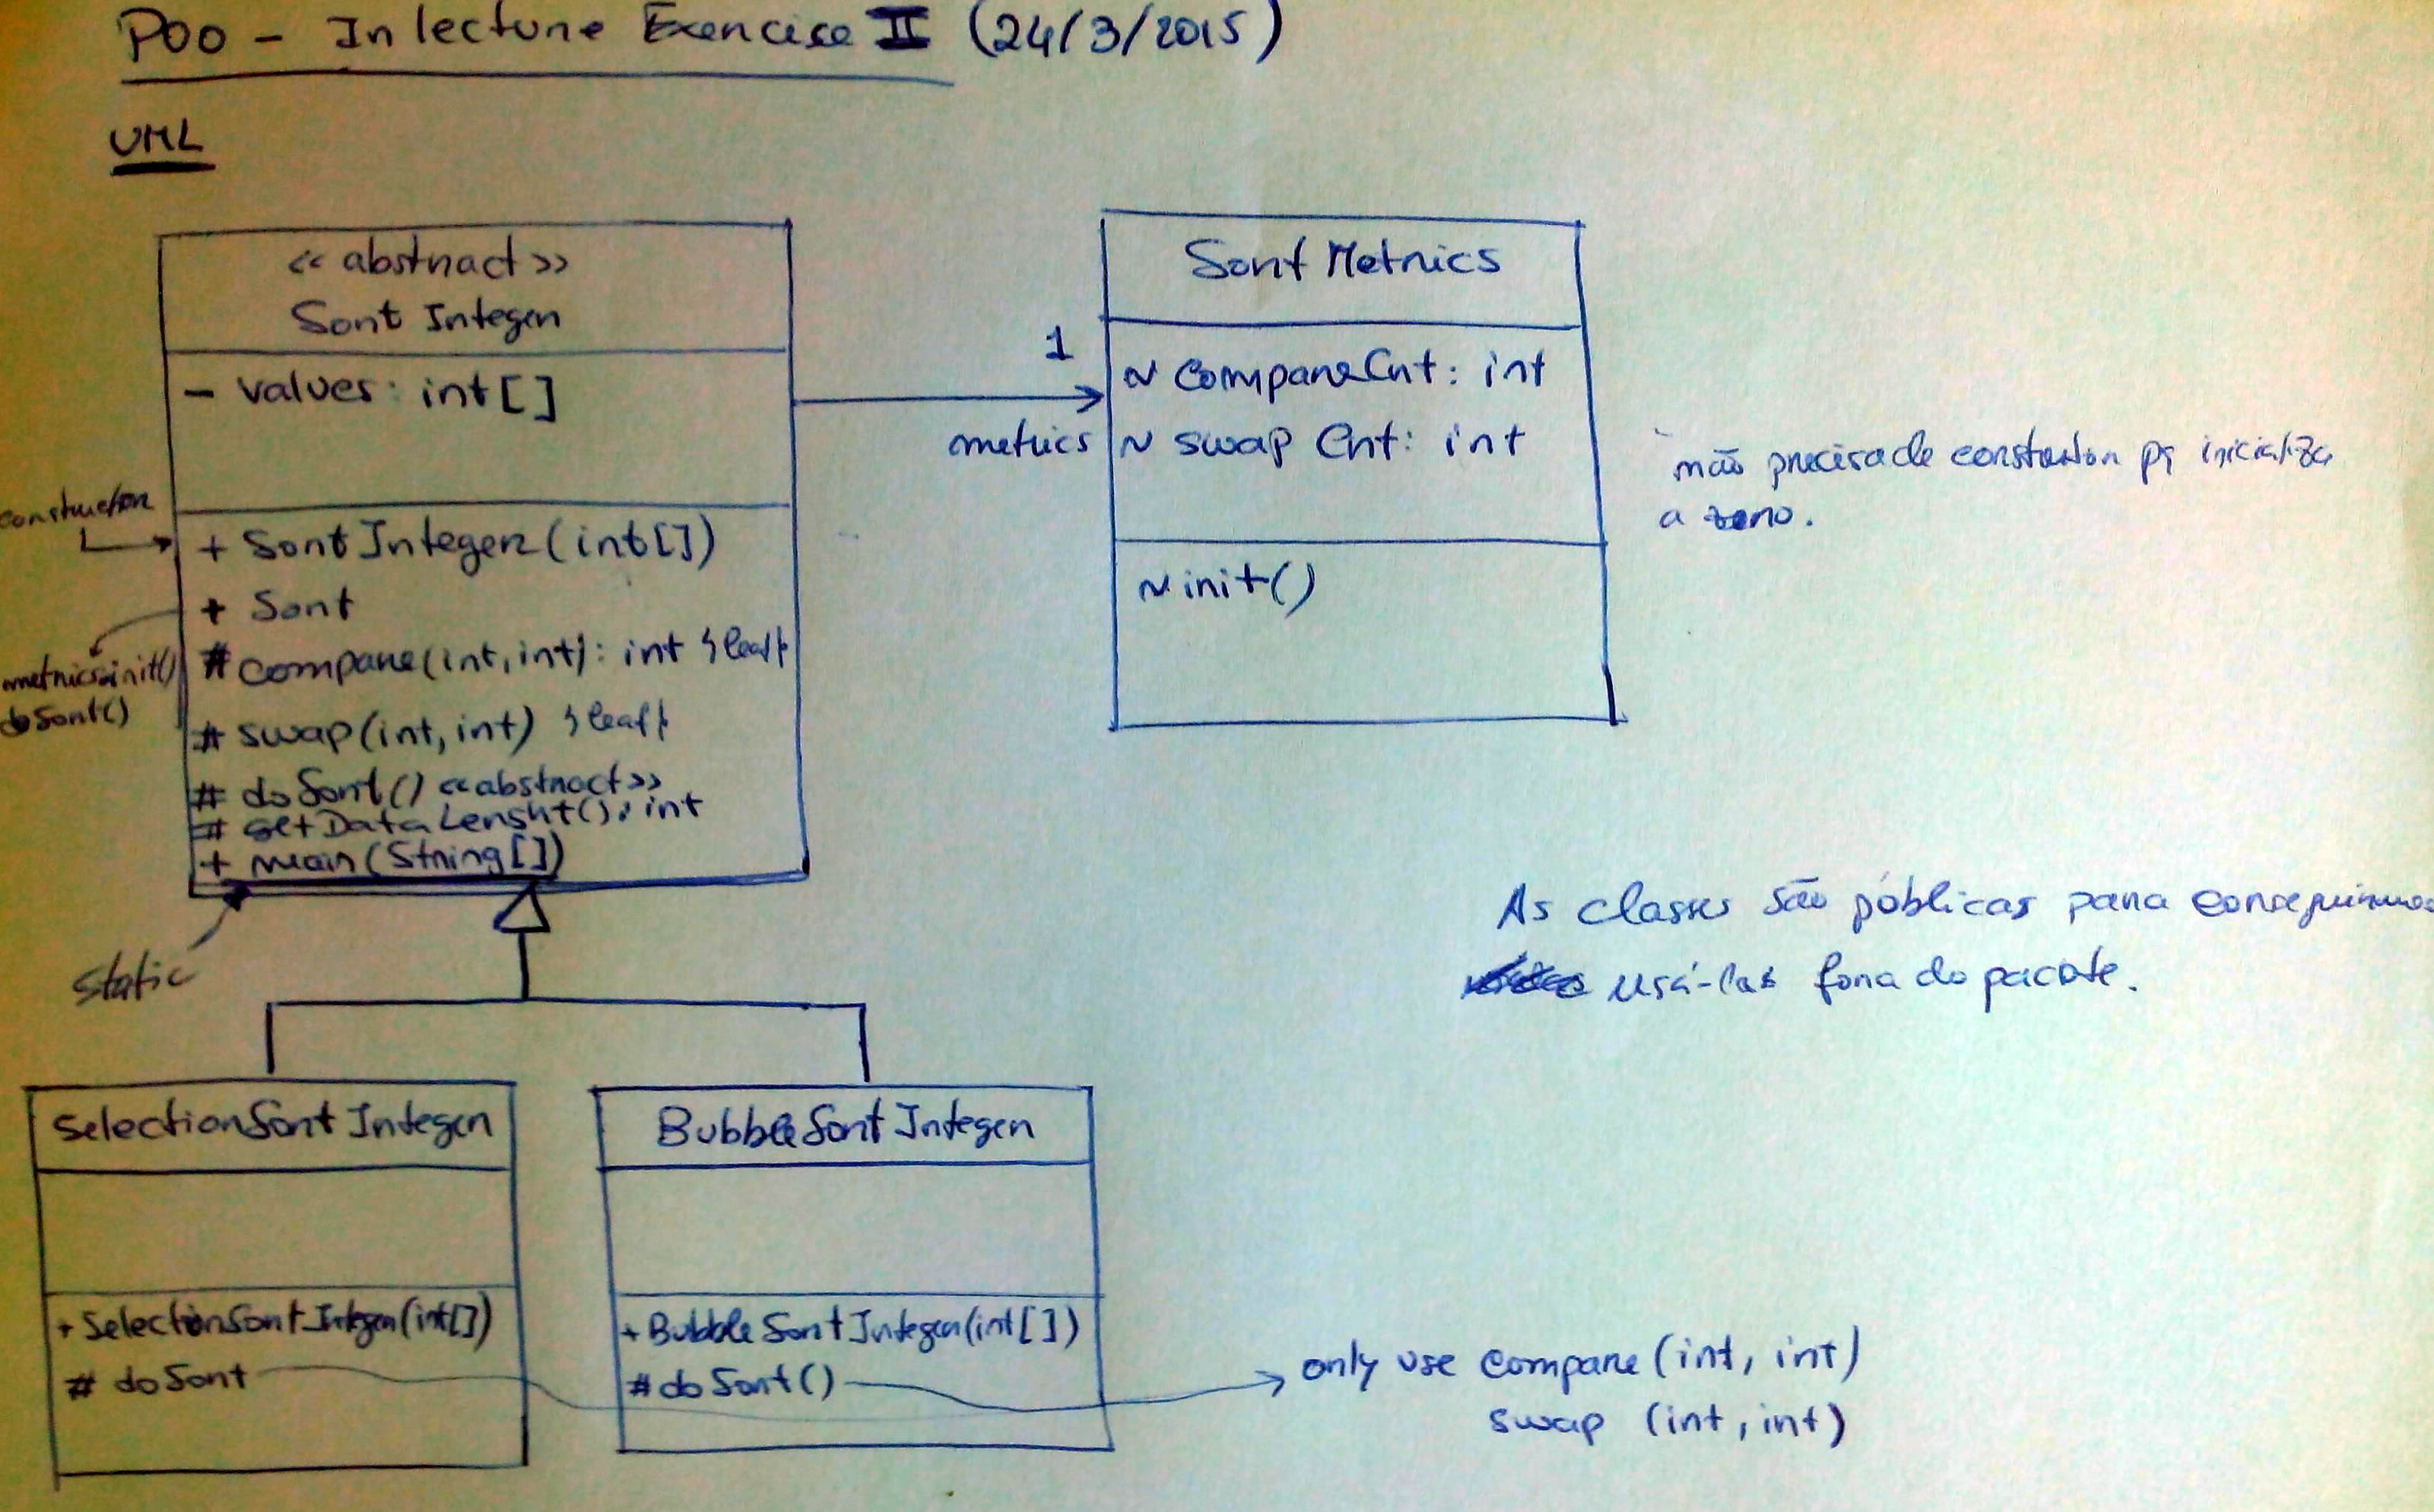 POO - In lecture Exercise II (24/3/2015)
UML
<< abstract >>
Sort Integer
- values: int[]
constructor
+ SortInteger(int[])
+ Sort
metrics.init()
doSort()
# compare(int, int): int {leaf}
# swap(int, int) {leaf}
# doSort() <<abstract>>
# getDataLenght(): int
+ main(String[])
static
1
metrics
Sort Metrics
~ compareCnt: int
~ swap Cnt: int
~ init()
não precisa de constructor pq inicializa
a zero.
As classes são públicas para conseguirmos
usá-las fora do pacote.
SelectionSort Integer
+ SelectionSortInteger(int[])
# doSort
BubbleSort Integer
+ BubbleSortInteger(int[])
# doSort()
only use compare (int, int)
swap (int, int)